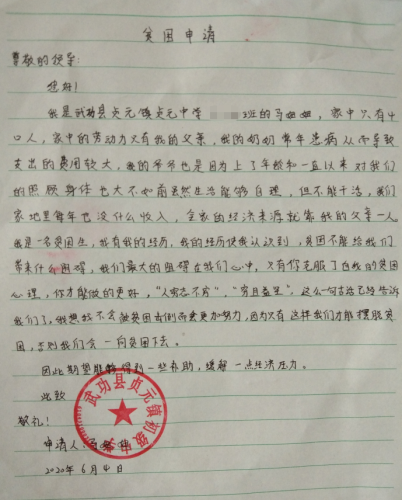 贫困申请
尊敬的领导:
您好!
我是武功县贞元镇贞元中学 班的马 , 家中只有四
口人,家中的劳动力只有我的父亲,我的奶奶常年患病从而导致
支出的费用较大,我的爷爷也是因为上了年纪和一直以来对我们
的照顾身体也大不如前虽然生活能够自理,但不能干活,我们
家地里每年也没什么收入,全家的经济来源就靠我的父亲一人。
我是一名贫困生,我有我的经历,我的经历使我认识到,贫困不能给我们
带来什么阻碍,我们最大的阻碍在我们心中,只有你克服了自我的贫困
心理,你才能做的更好,“人穷志不穷”,“穷且益坚”,这么一句古话已经告诉
我们了,我想我不会被贫困击倒而要更加努力,因为只有这样我们才能摆脱贫
困,否则我们会一向贫困下去。
因此期望能够得到一些补助,缓解一点经济压力。
此致
敬礼!
申请人:马
2020年6月4日
武功县贞元镇初级中学